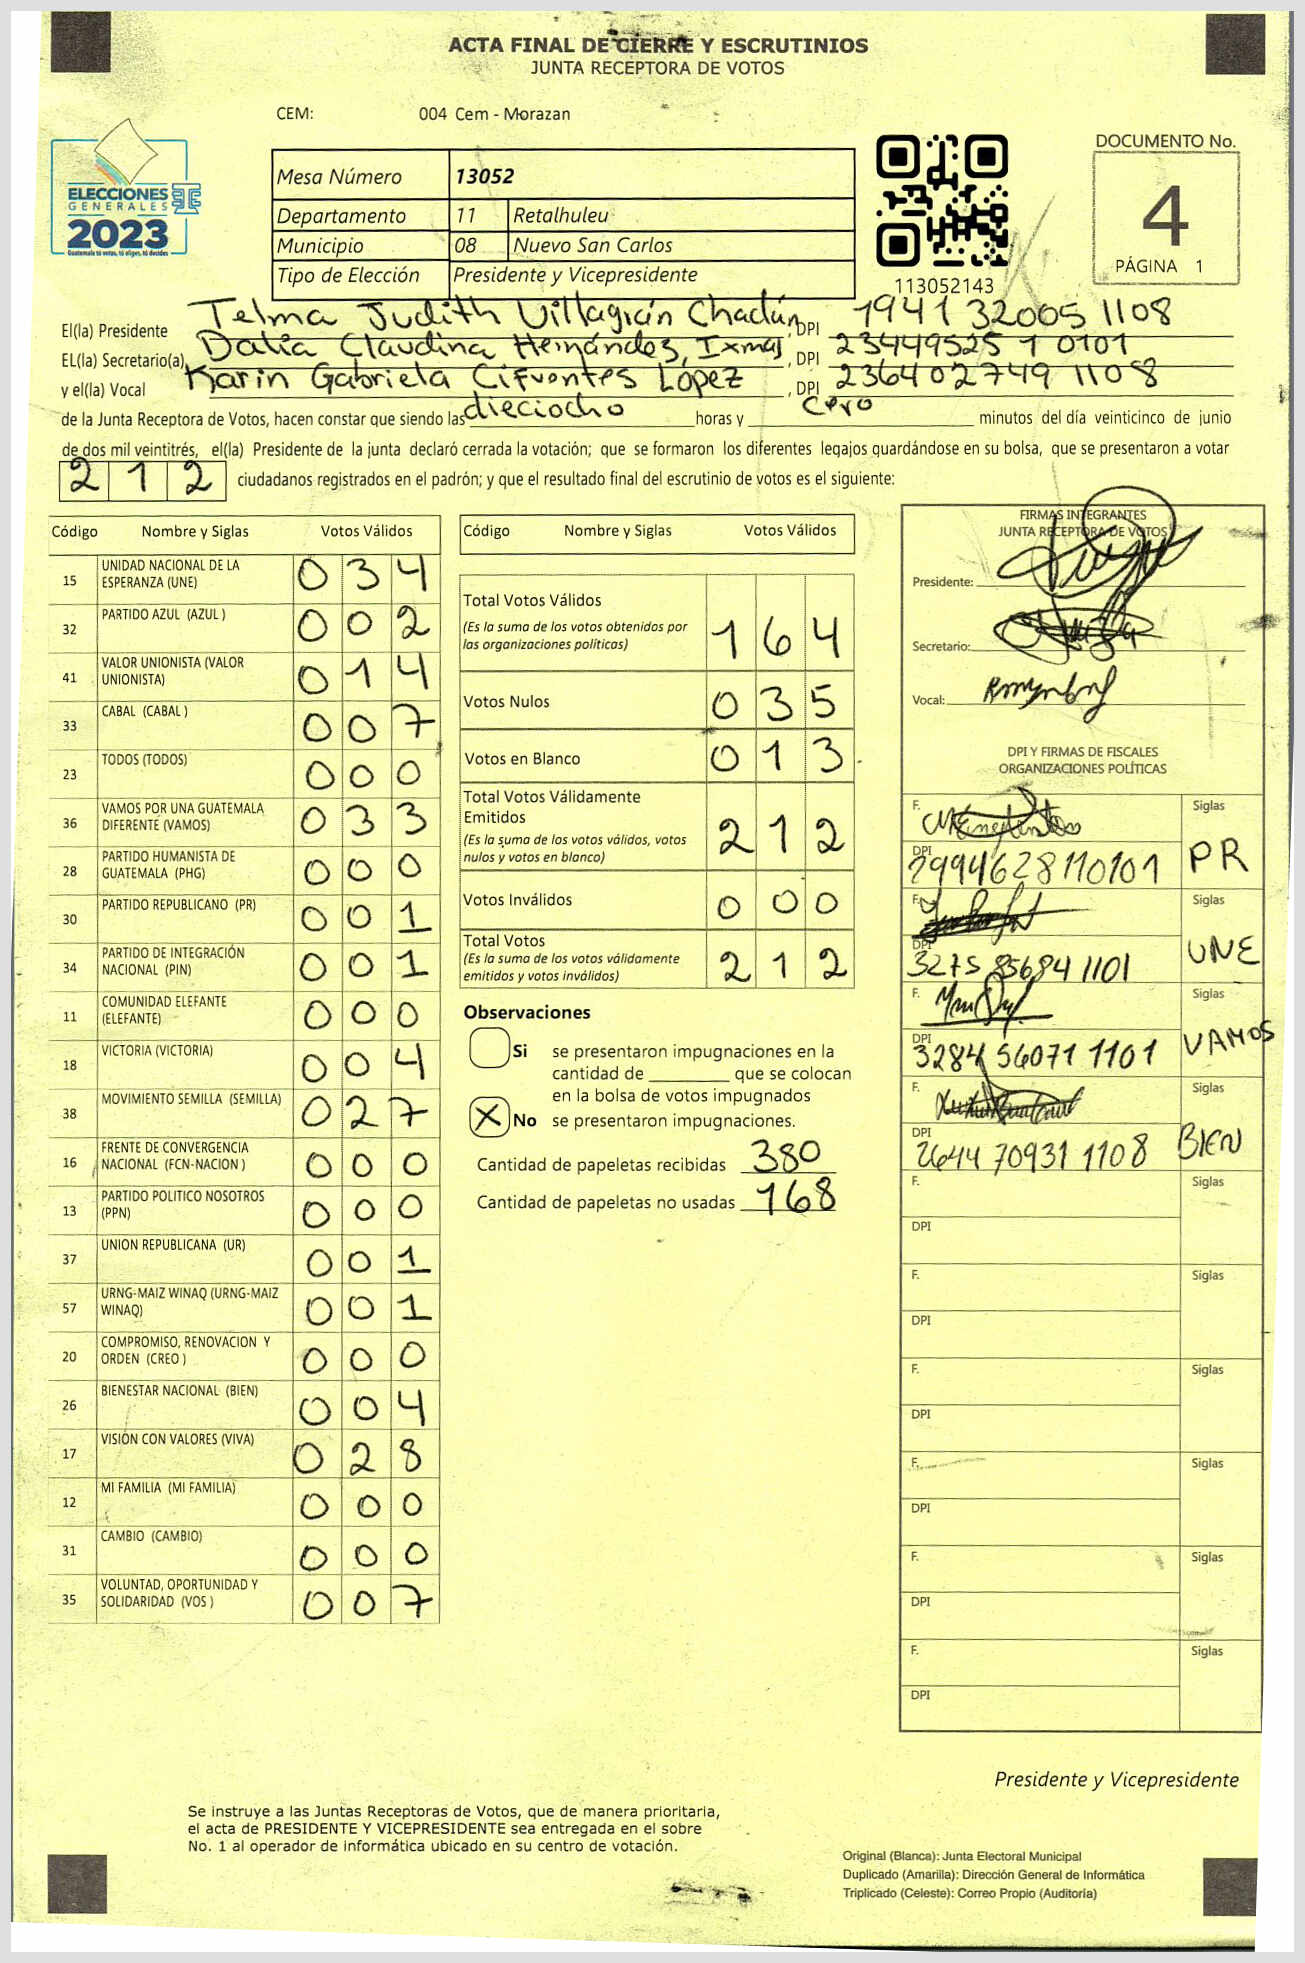 ACTA FINAL DE CIERRE Y ESCRUTINIOS
JUNTA RECEPTORA DE VOTOS
CEM: 004 Cem - Morazan
ELECCIONES
GENERALES
2023
Guatemala tú votas, tú eliges, tú decides
Mesa Número 13052
Departamento 11 Retalhuleu
Municipio 08 Nuevo San Carlos
Tipo de Elección Presidente y Vicepresidente
113052143
DOCUMENTO No.
4
PÁGINA 1
El(la) Presidente Telma Judith Villagrán Chadún, DPI 1941 32005 1108
EL(la) Secretario(a), Dalia Claudina Hernández, Ixmay, DPI 23449525 1 0101
y el(la) Vocal Karin Gabriela Cifuentes López, DPI 2364 02749 1108
de la Junta Receptora de Votos, hacen constar que siendo las dieciocho horas y cero minutos del día veinticinco de junio
de dos mil veintitrés, el(la) Presidente de la junta declaró cerrada la votación; que se formaron los diferentes legajos guardándose en su bolsa, que se presentaron a votar
212 ciudadanos registrados en el padrón; y que el resultado final del escrutinio de votos es el siguiente:
Código Nombre y Siglas Votos Válidos
15 UNIDAD NACIONAL DE LA ESPERANZA (UNE) 034
32 PARTIDO AZUL (AZUL ) 002
41 VALOR UNIONISTA (VALOR UNIONISTA) 014
33 CABAL (CABAL ) 007
23 TODOS (TODOS) 000
36 VAMOS POR UNA GUATEMALA DIFERENTE (VAMOS) 033
28 PARTIDO HUMANISTA DE GUATEMALA (PHG) 000
30 PARTIDO REPUBLICANO (PR) 001
34 PARTIDO DE INTEGRACIÓN NACIONAL (PIN) 001
11 COMUNIDAD ELEFANTE (ELEFANTE) 000
18 VICTORIA (VICTORIA) 004
38 MOVIMIENTO SEMILLA (SEMILLA) 027
16 FRENTE DE CONVERGENCIA NACIONAL (FCN-NACION ) 000
13 PARTIDO POLITICO NOSOTROS (PPN) 000
37 UNION REPUBLICANA (UR) 001
57 URNG-MAIZ WINAQ (URNG-MAIZ WINAQ) 001
20 COMPROMISO, RENOVACION Y ORDEN (CREO ) 000
26 BIENESTAR NACIONAL (BIEN) 004
17 VISIÓN CON VALORES (VIVA) 028
12 MI FAMILIA (MI FAMILIA) 000
31 CAMBIO (CAMBIO) 000
35 VOLUNTAD, OPORTUNIDAD Y SOLIDARIDAD (VOS ) 007
Código Nombre y Siglas Votos Válidos
Total Votos Válidos
(Es la suma de los votos obtenidos por
las organizaciones políticas) 164
Votos Nulos 035
Votos en Blanco 013
Total Votos Válidamente
Emitidos
(Es la suma de los votos válidos, votos
nulos y votos en blanco) 212
Votos Inválidos 000
Total Votos
(Es la suma de los votos válidamente
emitidos y votos inválidos) 212
Observaciones
Si se presentaron impugnaciones en la
cantidad de ________ que se colocan
en la bolsa de votos impugnados
X No se presentaron impugnaciones.
Cantidad de papeletas recibidas 380
Cantidad de papeletas no usadas 168
FIRMAS INTEGRANTES
JUNTA RECEPTORA DE VOTOS
Presidente:
Secretario:
Vocal:
DPI Y FIRMAS DE FISCALES
ORGANIZACIONES POLÍTICAS
F. Siglas
DPI 2994628110101 PR
F. Siglas
DPI 3275 85684 1101 UNE
F. Siglas
DPI 3284 56071 1101 VAMOS
F. Siglas
DPI 2644 70931 1108 BIEN
F. Siglas
DPI
F. Siglas
DPI
F. Siglas
DPI
F. Siglas
DPI
F. Siglas
DPI
F. Siglas
DPI
Presidente y Vicepresidente
Se instruye a las Juntas Receptoras de Votos, que de manera prioritaria,
el acta de PRESIDENTE Y VICEPRESIDENTE sea entregada en el sobre
No. 1 al operador de informática ubicado en su centro de votación.
Original (Blanca): Junta Electoral Municipal
Duplicado (Amarilla): Dirección General de Informática
Triplicado (Celeste): Correo Propio (Auditoría)